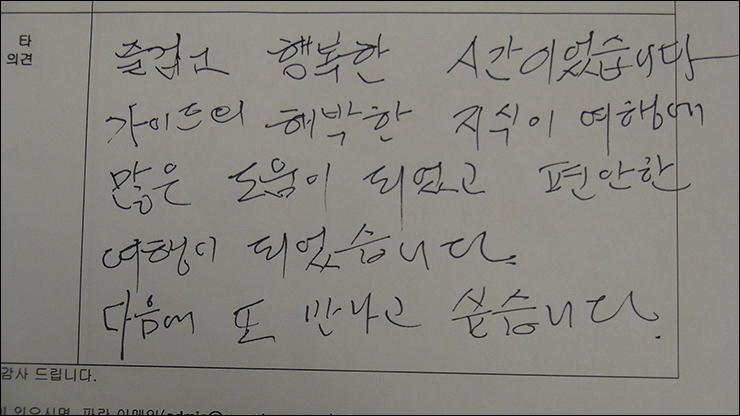 타
의견
즐겁고 행복한 시간이었습니다
가이드의 해박한 지식이 여행에
많은 도움이 되었고 편안한
여행이 되었습니다.
다음에 또 만나고 싶습니다.
감사 드립니다.